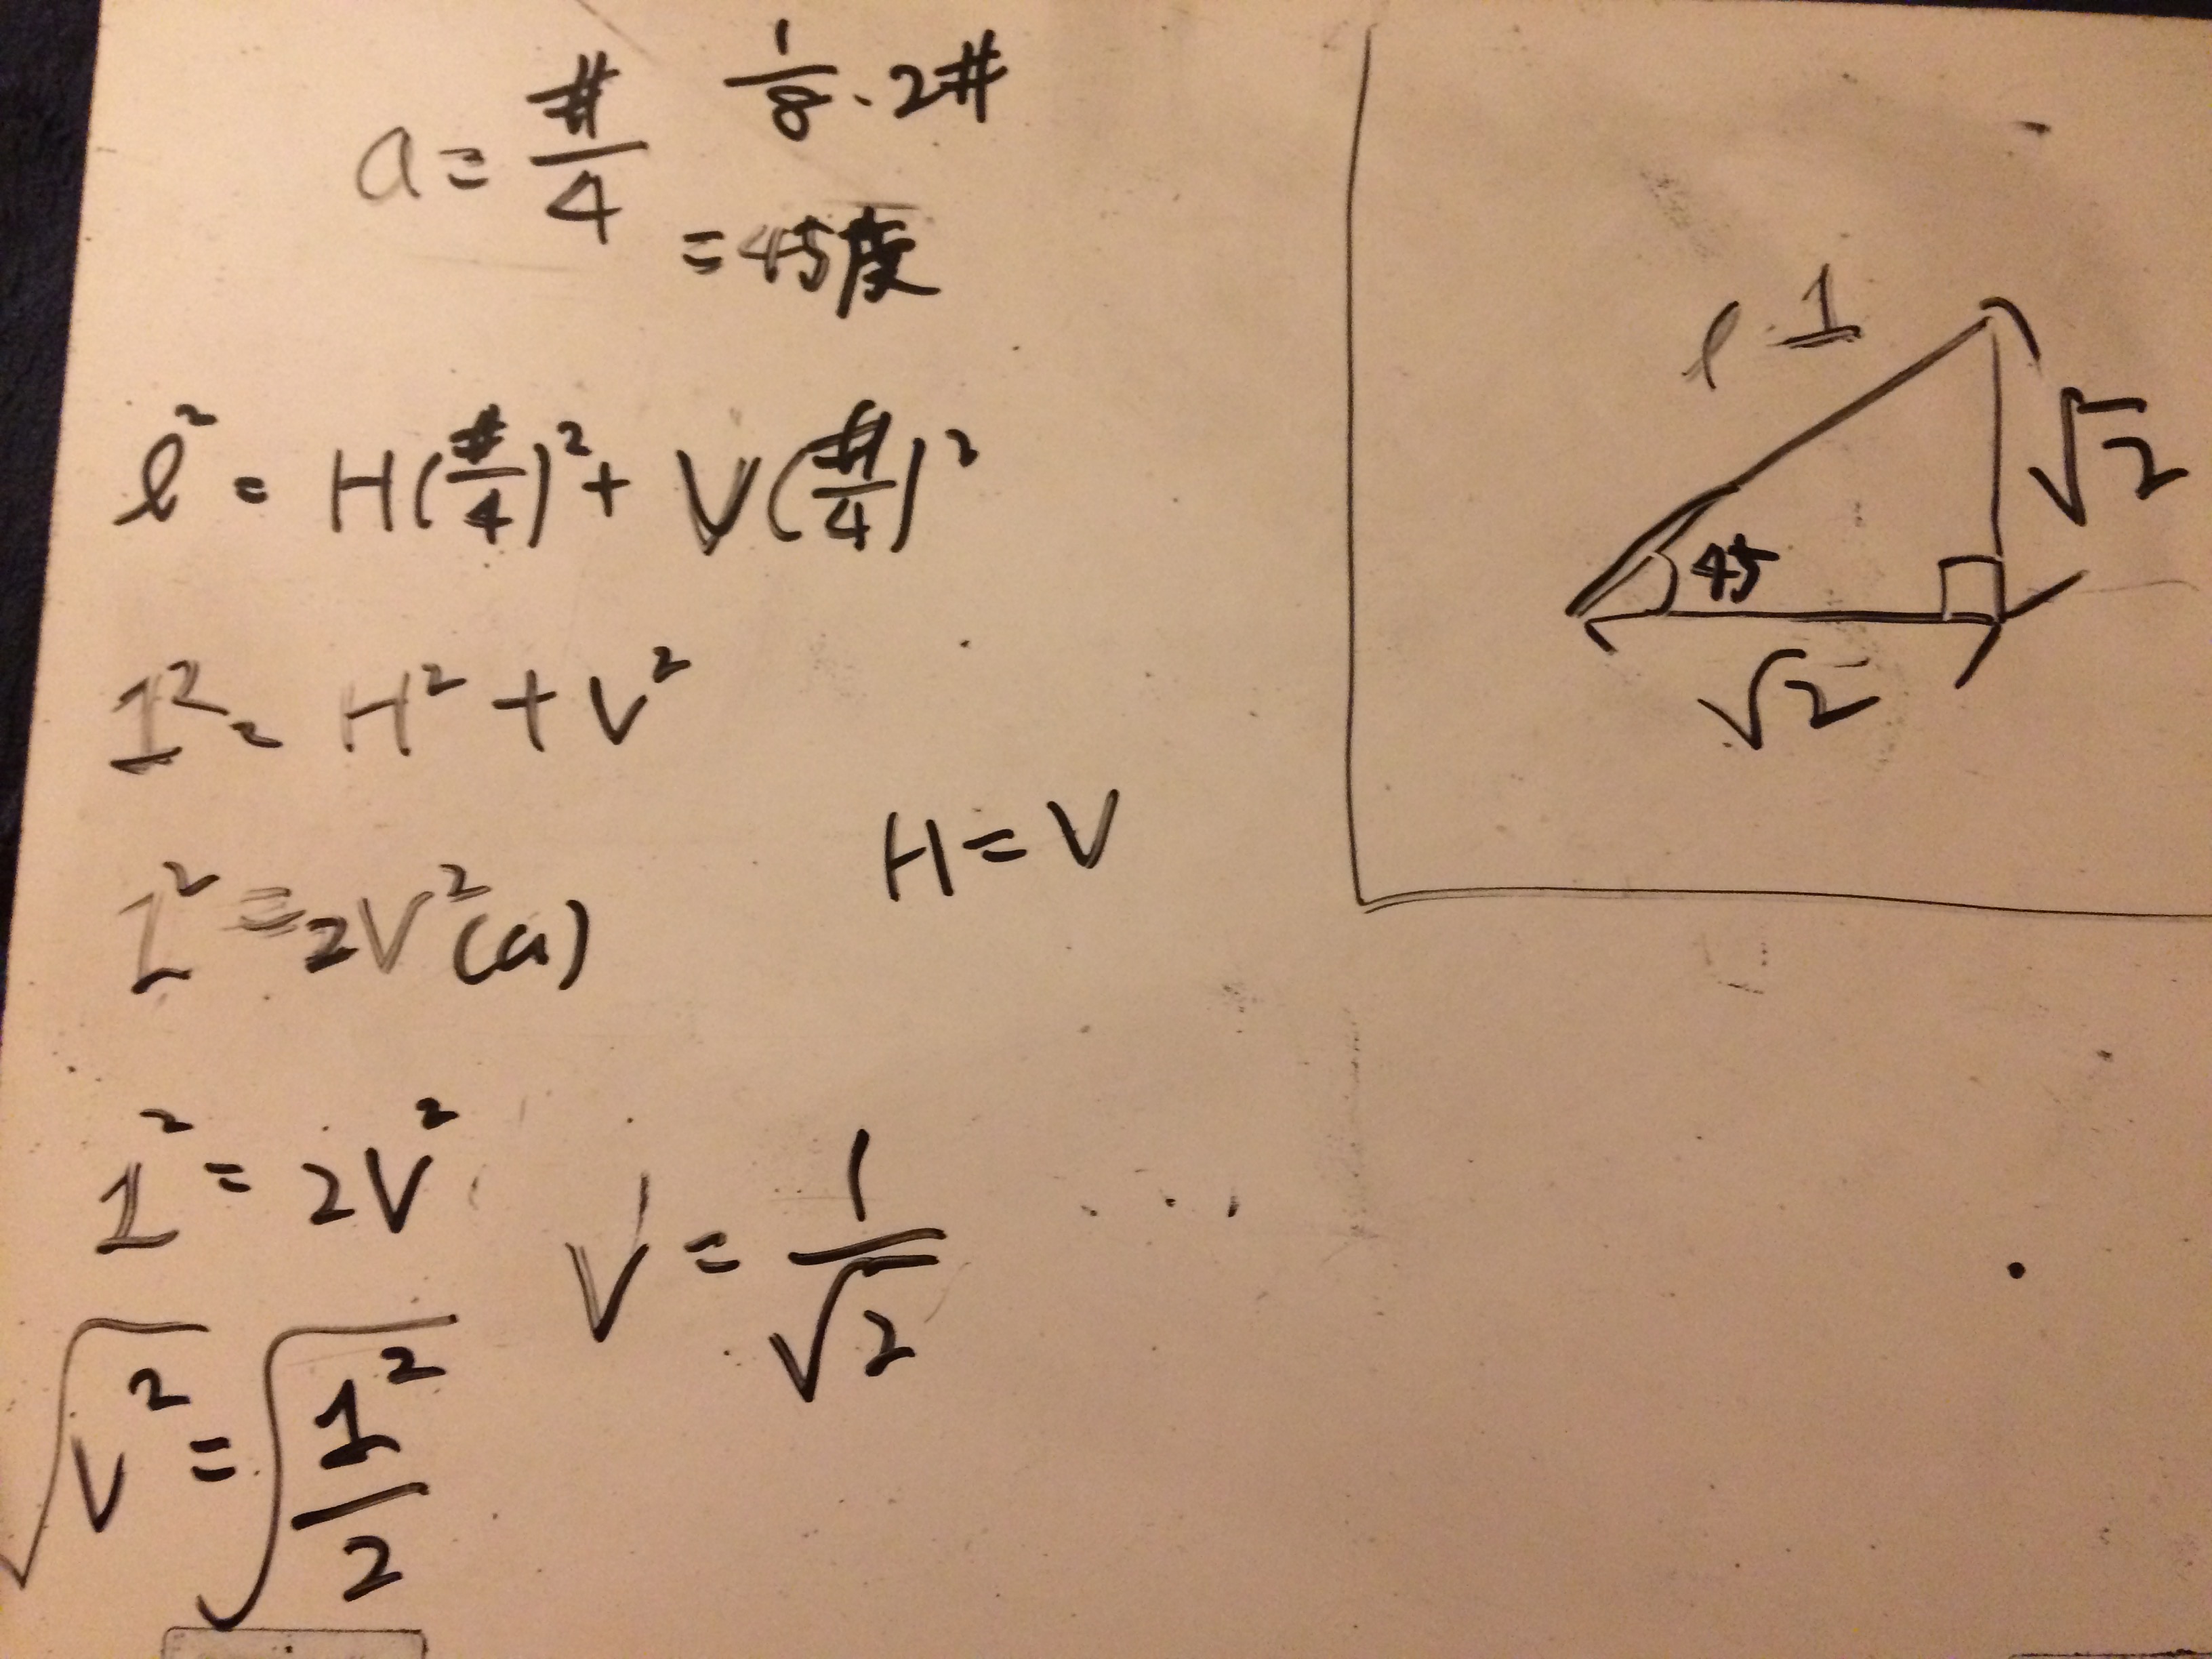 a = #/4 1/8 · 2#
= 45度
l² = H(#/4)² + V(#/4)²
1² = H² + V²
1² = 2V²(a) H = V
1² = 2V²
V = 1/√2
√V² = √1²/2
l 1
45
√2
√2